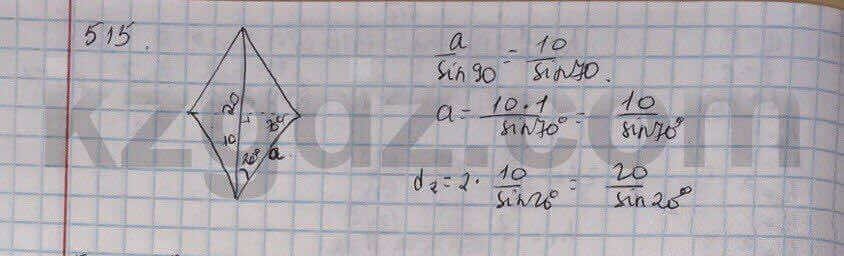 515.
20
10
20°
a
a/sin90 = 10/sin70.
a = 10·1/sin70° = 10/sin70°
d₂ = 2· 10/sin20° = 20/sin20°
kzgdz.com